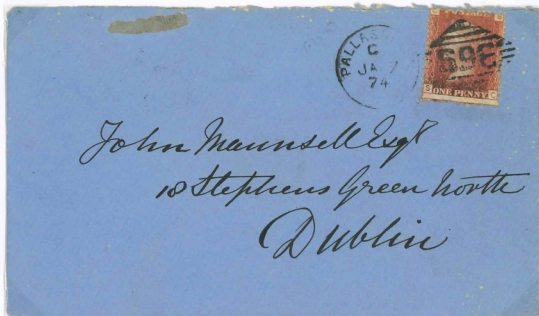 POSTAGE
PALLAS
C
JA 7
74
ONE PENNY
S C
John Maunsell Esqr
18 Stephens Green North
Dublin